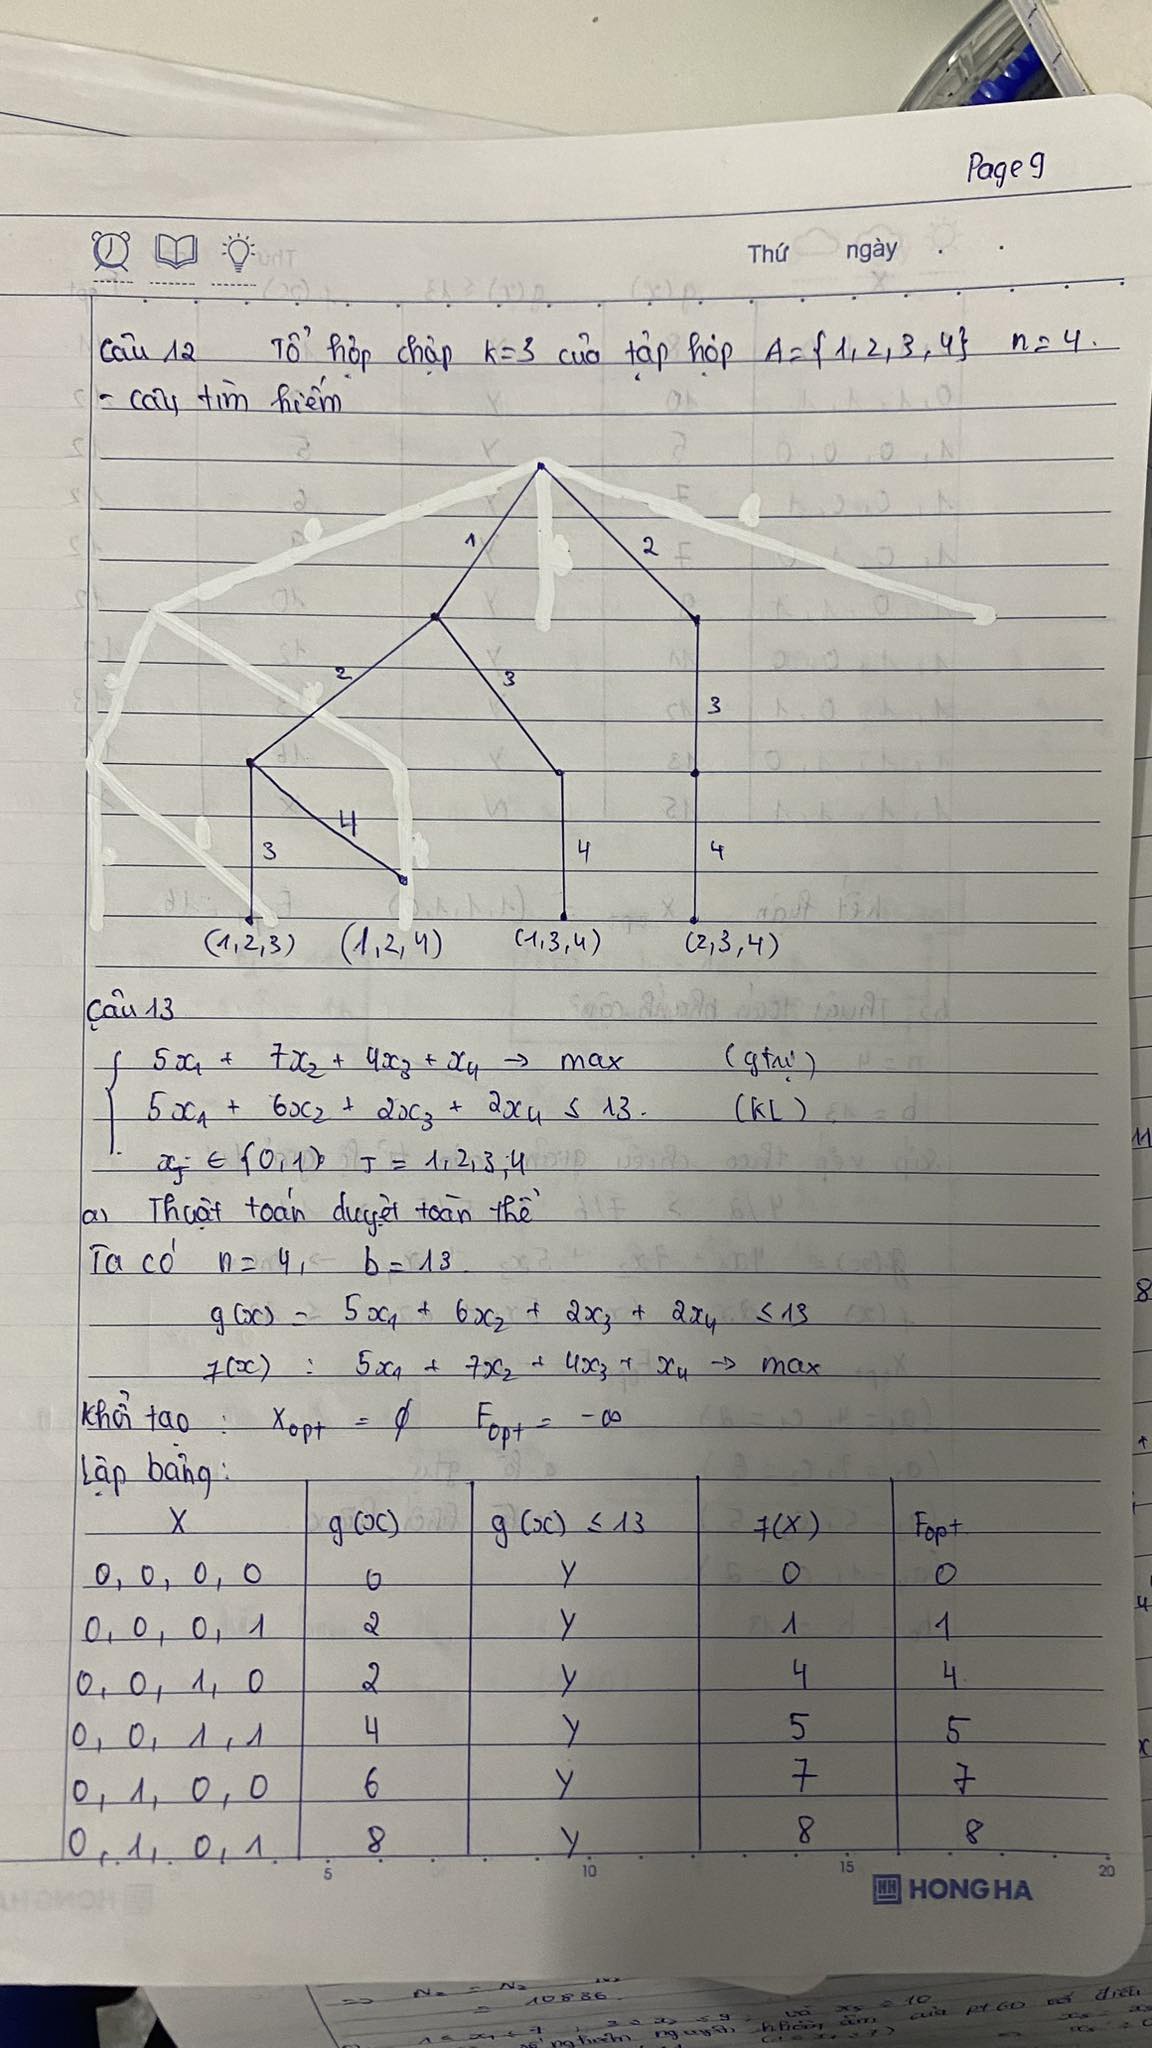 Page 9
Thứ ngày
Câu 12 Tổ hợp chập k=3 của tập hợp A={1,2,3,4} n=4.
- cây tìm kiếm
1 2
2 3 3
3 4 4 4
(1,2,3) (1,2,4) (1,3,4) (2,3,4)
Câu 13
5x₁ + 7x₂ + 4x₃ + x₄ → max (gtrị)
5x₁ + 6x₂ + 2x₃ + 2x₄ ≤ 13. (KL)
xⱼ ∈ {0,1} J = 1,2,3,4
a) Thuật toán duyệt toàn thể
Ta có n=4, b=13.
g(x) = 5x₁ + 6x₂ + 2x₃ + 2x₄ ≤ 13
f(x) : 5x₁ + 7x₂ + 4x₃ + x₄ → max
Khởi tạo : Xopt = ∅ Fopt = -∞
Lập bảng:
X g(x) g(x) ≤ 13 f(X) Fopt
0, 0, 0, 0 0 y 0 0
0, 0, 0, 1 2 y 1 1
0, 0, 1, 0 2 y 4 4
0, 0, 1, 1 4 y 5 5
0, 1, 0, 0 6 y 7 7
0, 1, 0, 1 8 y 8 8
5 10 15 20
HONG HA
= 10886.